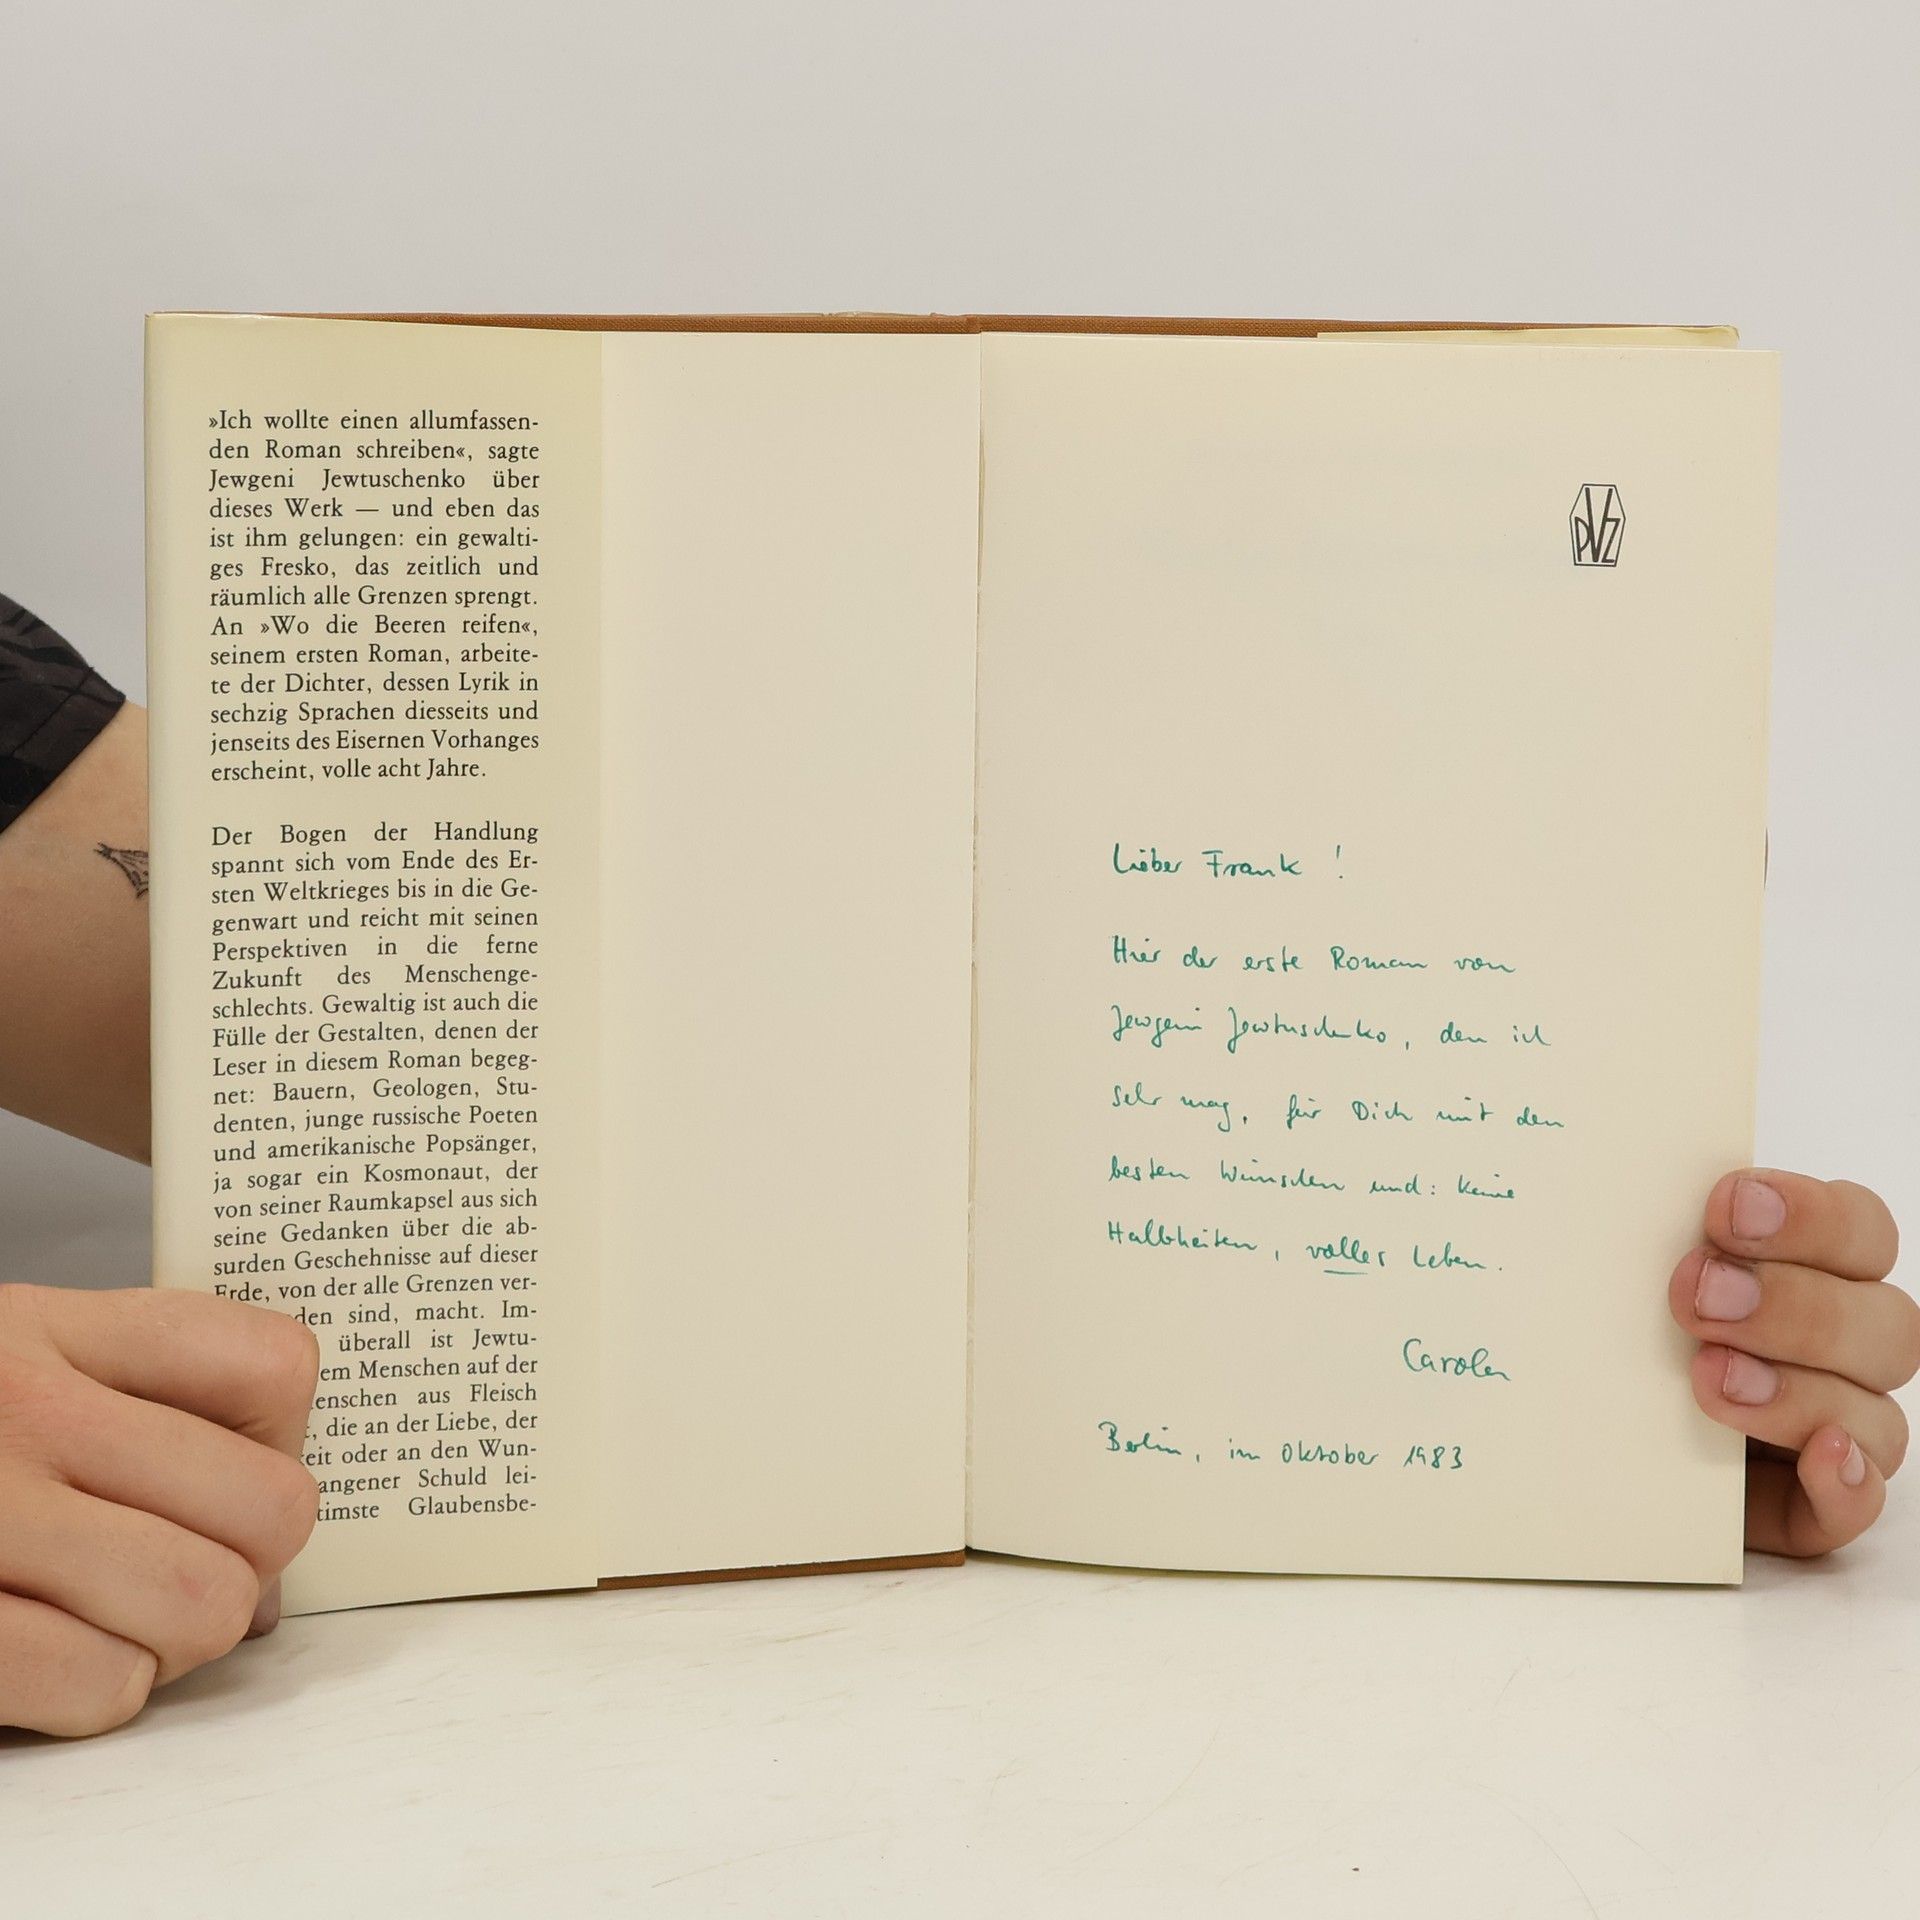 »Ich wollte einen allumfassen-
den Roman schreiben«, sagte
Jewgeni Jewtuschenko über
dieses Werk — und eben das
ist ihm gelungen: ein gewalti-
ges Fresko, das zeitlich und
räumlich alle Grenzen sprengt.
An »Wo die Beeren reifen«,
seinem ersten Roman, arbeite-
te der Dichter, dessen Lyrik in
sechzig Sprachen diesseits und
jenseits des Eisernen Vorhanges
erscheint, volle acht Jahre.
Der Bogen der Handlung
spannt sich vom Ende des Er-
sten Weltkrieges bis in die Ge-
genwart und reicht mit seinen
Perspektiven in die ferne
Zukunft des Menschenge-
schlechts. Gewaltig ist auch die
Fülle der Gestalten, denen der
Leser in diesem Roman begeg-
net: Bauern, Geologen, Stu-
denten, junge russische Poeten
und amerikanische Popsänger,
ja sogar ein Kosmonaut, der
von seiner Raumkapsel aus sich
seine Gedanken über die ab-
surden Geschehnisse auf dieser
Erde, von der alle Grenzen ver-
den sind, macht. Im-
überall ist Jewtu-
em Menschen auf der
enschen aus Fleisch
, die an der Liebe, der
eit oder an den Wun-
angener Schuld lei-
timste Glaubensbe-
PVZ
Lieber Frank !
Hier der erste Roman von
Jewgeni Jewtuschenko, den ich
sehr mag, für Dich mit den
besten Wünschen und: keine
Halbheiten, volles Leben.
Carolen
Berlin, im Oktober 1983